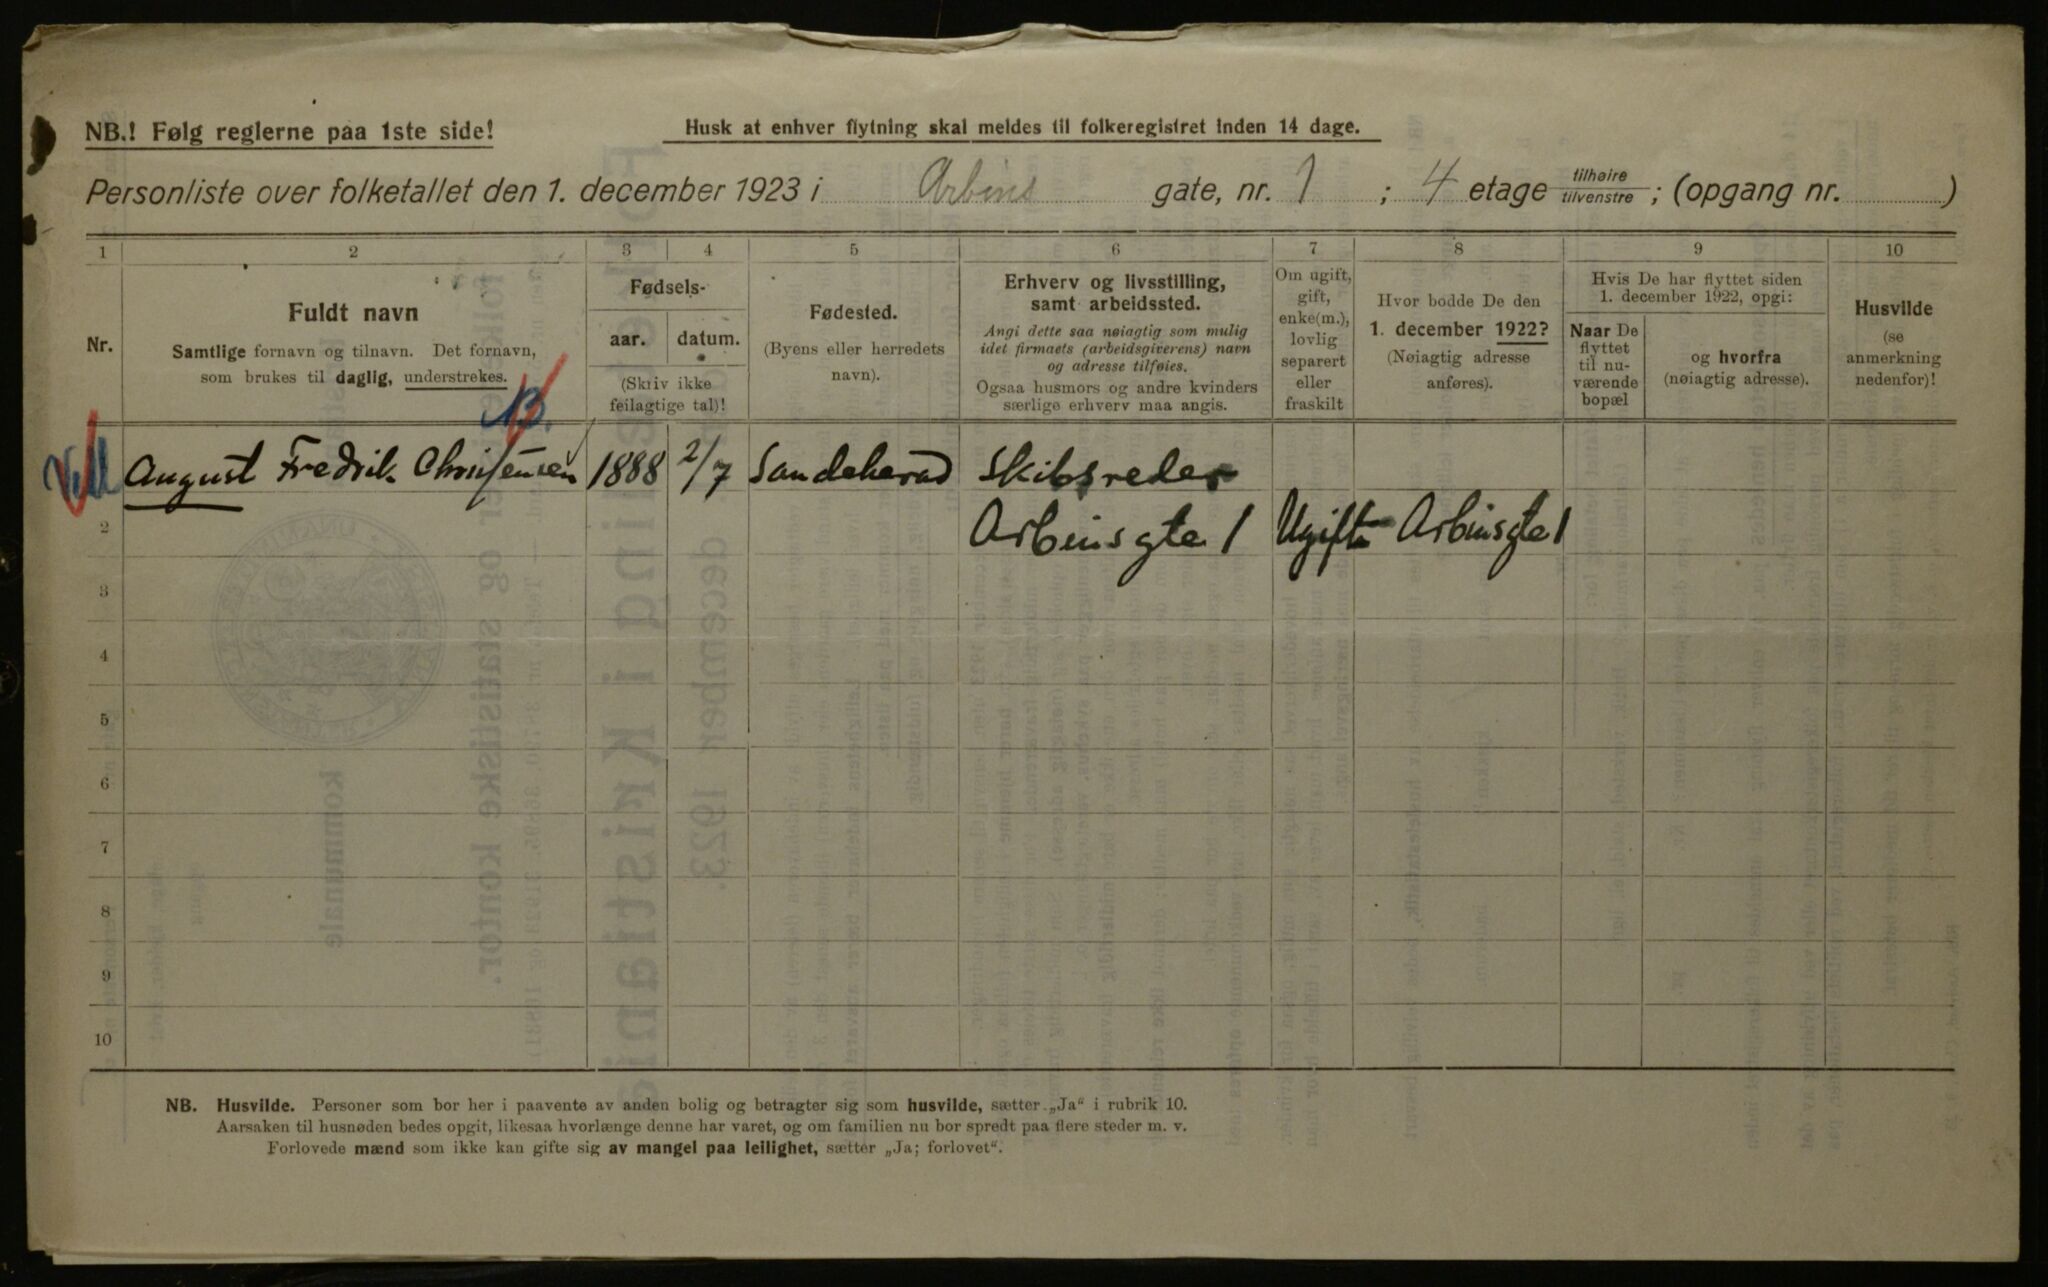 NB.! Følg reglerne paa 1ste side!
Husk at enhver flytning skal meldes til folkeregistret inden 14 dage.
Personliste over folketallet den 1. december 1923 i Arbins gate, nr. 1 ; 4 etage tilhøire tilvenstre ; (opgang nr. )
1 2 3 4 5 6 7 8 9 10
Nr.
Fuldt navn
Samtlige fornavn og tilnavn. Det fornavn,
som brukes til daglig, understrekes.
Fødsels-
aar. datum.
(Skriv ikke
feilagtige tal)!
Fødested.
(Byens eller herredets
navn).
Erhverv og livsstilling,
samt arbeidssted.
Angi dette saa nøiagtig som mulig
idet firmaets (arbeidsgiverens) navn
og adresse tilføies.
Ogsaa husmors og andre kvinders
særlige erhverv maa angis.
Om ugift,
gift,
enke(m.),
lovlig
separert
eller
fraskilt
Hvor bodde De den
1. december 1922?
(Nøiagtig adresse
anføres).
Hvis De har flyttet siden
1. december 1922, opgi:
Naar De
flyttet
til nu-
værende
bopæl
og hvorfra
(nøiagtig adresse).
Husvilde
(se
anmerkning
nedenfor)!
August Fredrik Christensen 1888 2/7 Sandeherad Skibsreder
2 Arbinsgte 1 Ugift Arbinsgte 1
3
4
5
6
7
8
9
10
NB. Husvilde. Personer som bor her i paavente av anden bolig og betragter sig som husvilde, sætter „Ja“ i rubrik 10.
Aarsaken til husnøden bedes opgit, likesaa hvorlænge denne har varet, og om familien nu bor spredt paa flere steder m. v.
Forlovede mænd som ikke kan gifte sig av mangel paa leilighet, sætter „Ja; forlovet“.